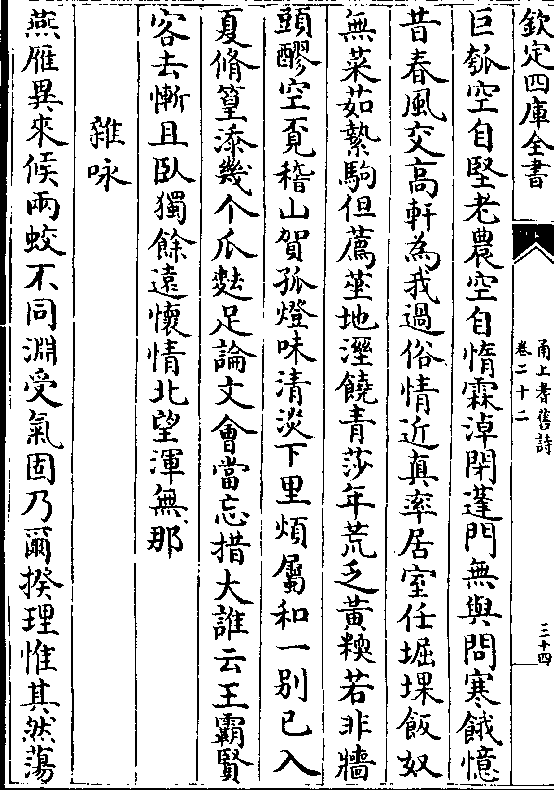 欽定四庫全書
甬上耆舊詩
卷二十二
三十四
巨瓠空自堅老農空自惰霖淖閉蓬門無與問寒餓憶
昔春風交高軒為我過俗情近真率居室任堀堁飯奴
無菜茹縶駒但薦莝地溼饒青莎年荒乏黃䊧若非牆
頭醪空覔稽山賀孤燈味清淡下里煩屬和一別已入
夏脩篁添幾个瓜麩足論文會當忘措大誰云王霸賢
客去慚且臥獨餘遠懷情北望渾無那
雜咏
燕雁異來候兩蛟不同淵受氣固乃爾揆理惟其然蕩